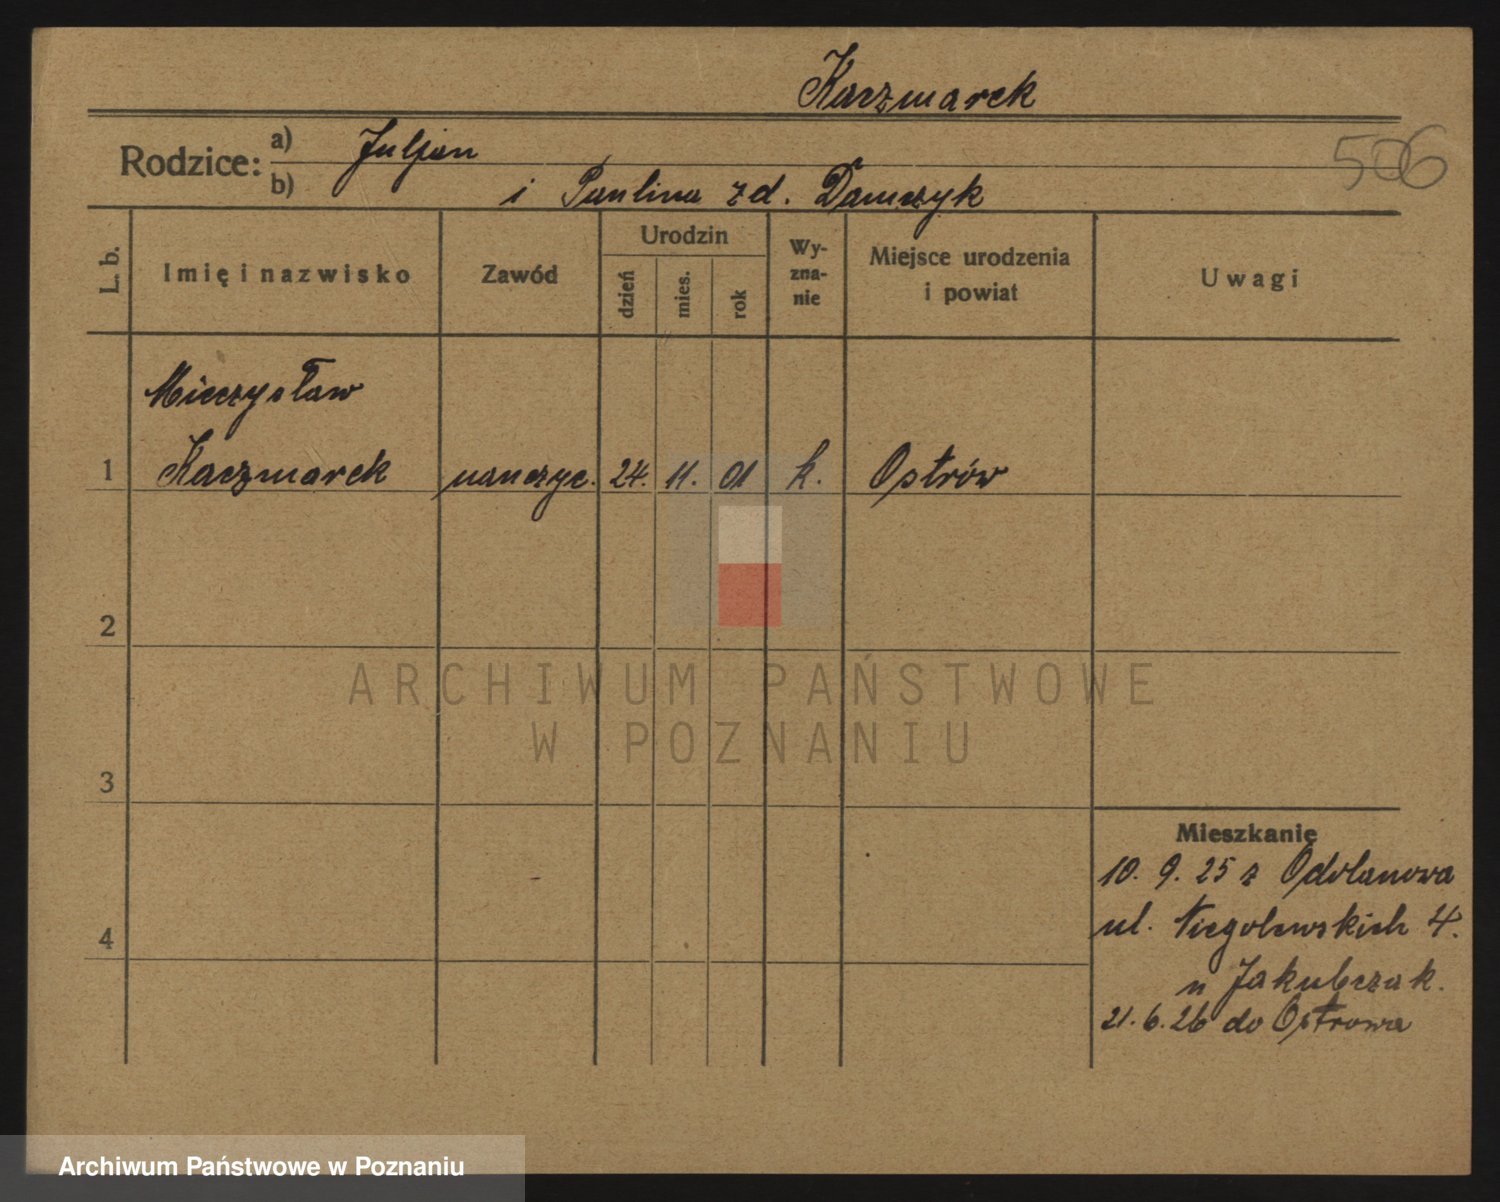 Kaczmarek
506
Rodzice: a) Juljan
b) i Paulina z d. Damczyk
L. b.
Imię i nazwisko
Zawód
Urodzin
dzień
mies.
rok
Wy-
zna-
nie
Miejsce urodzenia
i powiat
Uwagi
Mieczysław
1 Kaczmarek nauczyc. 24. 11. 01 k. Ostrów
2
3
4
Mieszkanie
10. 9. 25 z Odolanowa
ul. Niegolewskich 4.
u Jakubczak.
21. 6. 26 do Ostrowa
ARCHIWUM PAŃSTWOWE
W POZNANIU
Archiwum Państwowe w Poznaniu